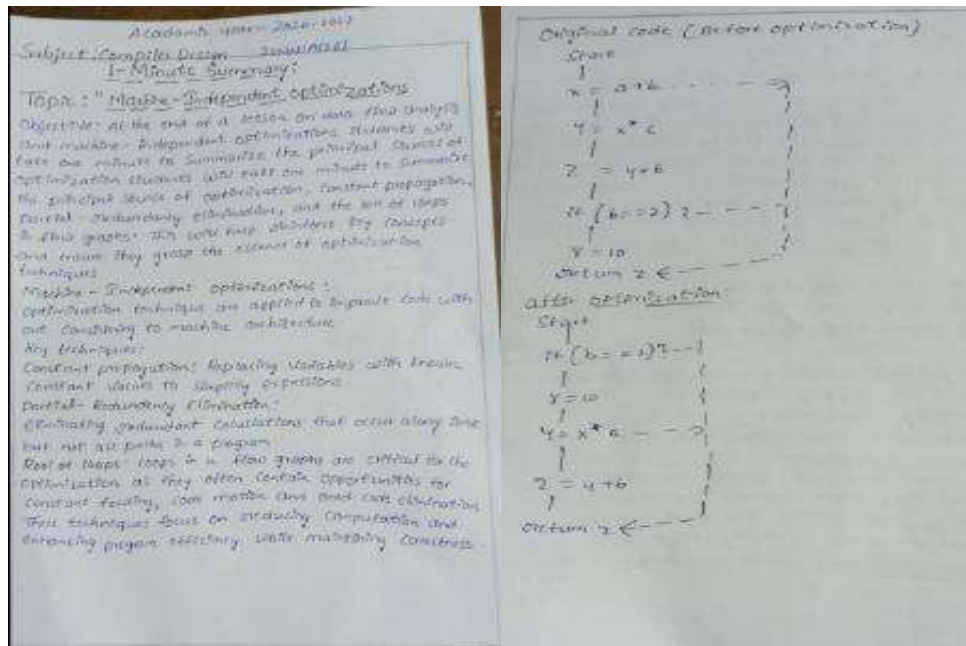 Academic year -
Subject: Compiler Design
1-Minute Summary:
Topic: "Machine-Independent optimizations
Objective: At the end of a lesson on data flow analysis
and machine-Independent optimizations, students will
take one minute to summarize the principal sources of
optimization students will take one minute to summarize
the principal source of optimization, constant propagation,
Partial-redundancy elimination, and the of loops
in flow graphs. This will help reinforce key concepts
and ensure they grasp the essence of optimization
techniques
Machine-Independent optimizations:
optimization technique are applied to improve code with
out to machine architecture
Key techniques:
Constant propagation: Replacing variables with known
constant values to simplify expressions.
Partial-Redundency Elimination:
Eliminating redundant calculations that occur along some
but not all paths in a program
of loops: loops in a flow graphs are critical for the
optimization as they often contain opportunities for
constant folding, code motion and dead code elimination
These techniques focus on reducing computation and
enhancing program efficiency while maintaining correctness.
Original code (Before optimization)
Start
x = a+b
y = x* c
z = y+b
if (b==2)?
8 = 10
return z
after optimization:
Start
if (b==2)?
8=10
y = x* c
z = y+b
return z